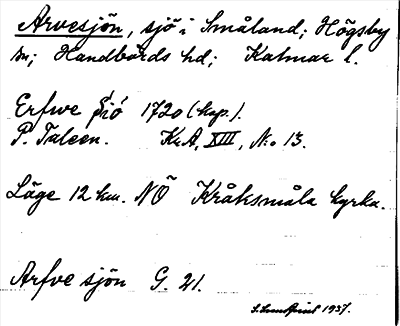 Arvesjön, sjö i Småland; Högsby
sn; Handbörds hd; Kalmar l.
Erfwe Siö 1720 (kop.).
P. Taleen. Kr.A, XIII, No 13.
Läge 12 km. NÖ Kråksmåla kyrka.
Arfve sjön G. 21.
1937.